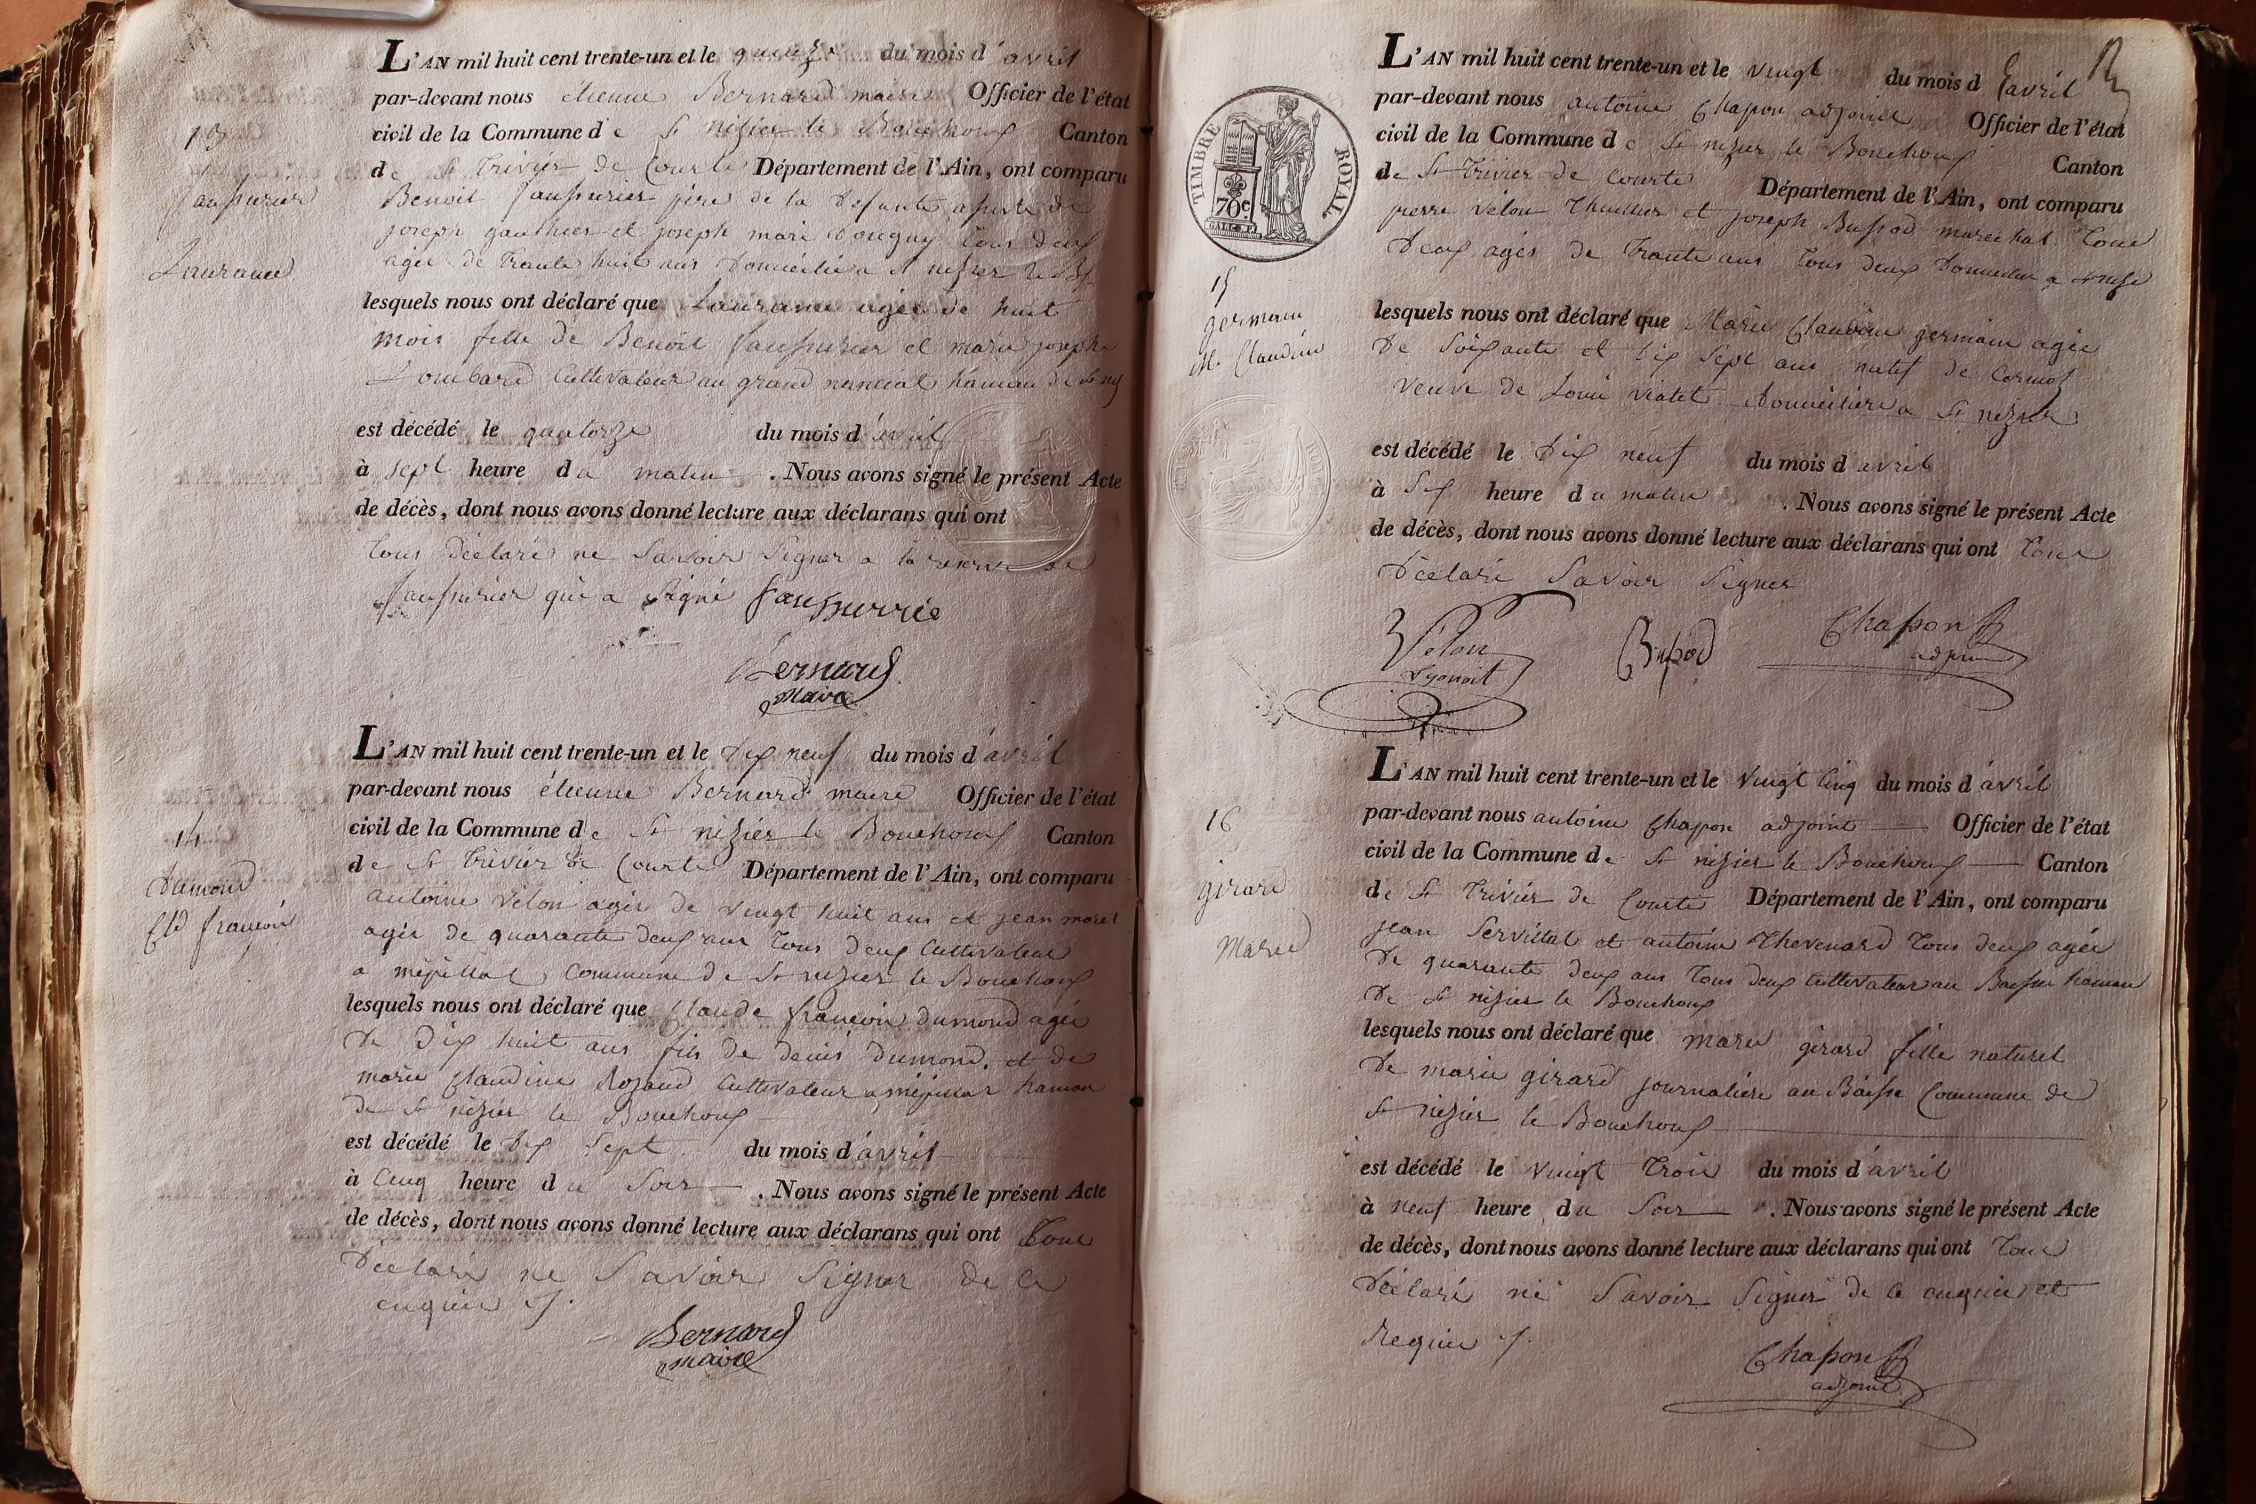 L'AN mil huit cent trente-un et le quinze du mois d'avril
par-devant nous étienne Bernard maire Officier de l'état
civil de la Commune de St nizier le Bouchoux Canton
de St Trivier de Courte Département de l'Ain, ont comparu
Benoit père de la Defunte
joseph gauthier et joseph mari tous deux
agée de Trante huit ans Domicilié a St nizier le B.
lesquels nous ont déclaré que Laurance agée de huit
mois fille de Benoit et marie josephe
Lombard Cultivateur au grand hameau de St
est décédé le quatorze du mois d'avril
à sept heure du matin. Nous avons signé le présent Acte
de décès, dont nous avons donné lecture aux déclarans qui ont
tous Déclaré ne Savoir Signer a la reserve de
qui a Signé
Bernard
maire
13
Laurance
L'AN mil huit cent trente-un et le Dix neuf du mois d'avril
par-devant nous étienne Bernard maire Officier de l'état
civil de la Commune de St nizier le Bouchoux Canton
de St Trivier de Courte Département de l'Ain, ont comparu
antoine Vélon agée de vingt huit ans et jean morel
agée de quarante deux ans Tous Deux Cultivateur
a Commune de St nizier le Bouchoux
lesquels nous ont déclaré que Claude françois dumond agée
De Dix huit ans fils de denis Dumond et de
marie Claudine Rozand Cultivateur a hamau
de St nizier le Bouchoux
est décédé le Dix Sept du mois d'avril
à Cinq heure du Soir. Nous avons signé le présent Acte
de décès, dont nous avons donné lecture aux déclarans qui ont Tous
Déclaré ne Savoir Signer de ce
enquis
Bernard
maire
14
dumond
Cld françois
12
TIMBRE ROYAL
70c
L'AN mil huit cent trente-un et le vingt du mois d'avril
par-devant nous antoine Chapon adjoint Officier de l'état
civil de la Commune de St nizier le Bouchoux Canton
de St Trivier de Courte Département de l'Ain, ont comparu
pierre Vélon Thuillier et joseph Bussod marechal Tous
Deux agés de Trante ans Tous deux Domicilié a
lesquels nous ont déclaré que Marie Claudine germain agée
De Soixante et Dix Sept ans natif de Cormoz
veuve de Louis violet Domiciliére a St nizier
est décédé le Dix neuf du mois d'avril
à Six heure du matin. Nous avons signé le présent Acte
de décès, dont nous avons donné lecture aux déclarans qui ont Tous
Déclaré Savoir Signer
Vélon
Lyonoit
Bussod
Chapon
adjoint
15
germain
M. Claudine
L'AN mil huit cent trente-un et le vingt Cinq du mois d'avril
par-devant nous antoine Chapon adjoint Officier de l'état
civil de la Commune de St nizier le Bouchoux Canton
de St Trivier de Courte Département de l'Ain, ont comparu
jean Servillat et antoine Thevenard Tous deux agée
De quarante deux ans Tous deux Cultivateur au Baisse hamau
De St nizier le Bouchoux
lesquels nous ont déclaré que marie girard fille naturel
De marie girard journaliére au Baisse Commune de
St nizier le Bouchoux
est décédé le vingt Trois du mois d'avril
à neuf heure du Soir. Nous avons signé le présent Acte
de décès, dont nous avons donné lecture aux déclarans qui ont Tous
Déclaré ne Savoir Signer de ce enquis et
Requis
Chapon
adjoint
16
girard
Marie